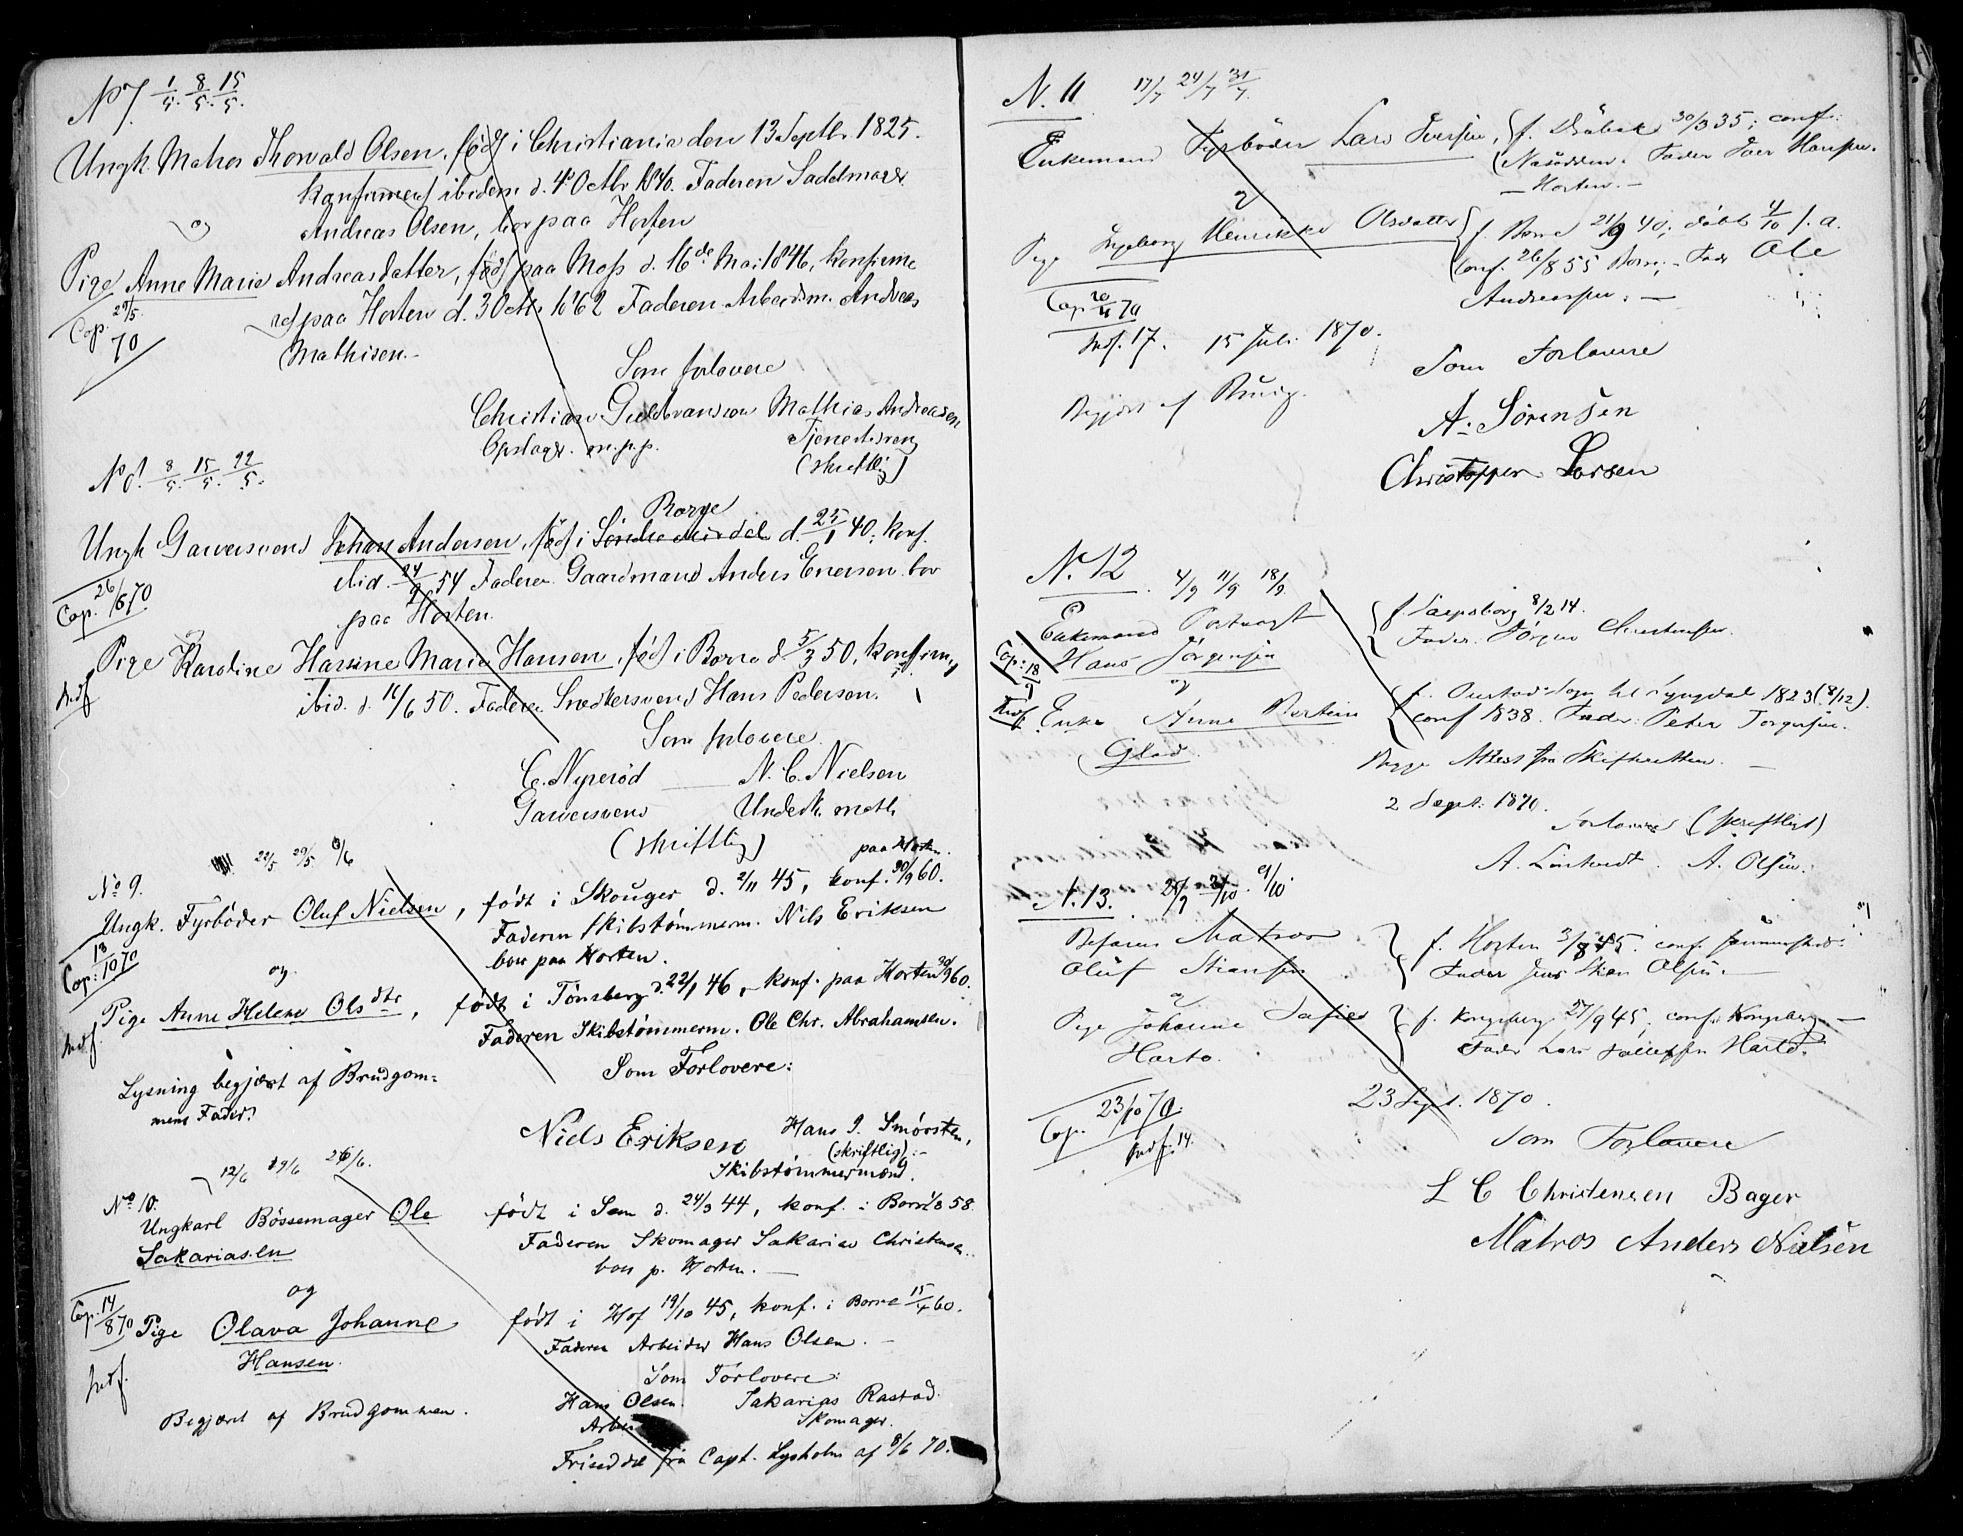 No 7. 1/5. 8/5. 15/5.
Ungk. Matros Thorvald Olsen, född i Christiania den 13 Septbr. 1825.
Konfirmert ibidem d. 4 Octbr 1840. Faderen Sadelmager
Andreas Olsen, bor paa Horten
og
Pige Anne Marie Andreasdatter, född paa Moss d. 16de Mai 1846, konfirme
ret paa Horten d. 3 Octbr 1862 Faderen Arbeidsm. Andreas
Mathisen.
Cop. 29/5. 70
Som forlovere
Christian Guldbransen Mathias Andreasen
Opslagr. m.p.p. Tjenestdreng
(skriftlig)
No 8. 8/5. 15/5. 22/5.
Borre
Ungk Garversvend Johan Andersen, född i Søndre Mirdal d. 25/1 40, konf.
ibid. 24/9 54 Faderen Gaardmand Anders Enersen bor
paa Horten.
Cop. 26/6 70
og
Pige Karoline Hansine Marie Hansen, född i Borre d. 5/3 50, konfirm.
ibid. d. 16/6 50. Faderen Snedkersvend Hans Pedersen.
Indf
Som forlovere
C. Nyrerød N. C. Nielsen
Garversvend Underk. math
(skriftlig)
22/5 29/5 6/6
paa Horten.
No 9.
Ungk. Fyrbøder Oluf Nielsen, født i Skouger d. 2/11 45, konf. 30/9 60.
Faderen Skibstømmerm. Nils Eriksen
boer paa Horten.
Cop: 13/10 70
og
Pige Anne Helene Olsdtr, født i Tønsberg d. 22/1 46, konf. paa Horten 30/9 60.
Faderen Skibstømmerm. Ole Chr. Abrahamsen.
Indf.
Som Forlovere:
Lysning begjært af Brudgom=
mens Fader.
Niels Eriksen Hans J. Smørsten,
(skriftlig):-
Skibstømmermænd.
12/6 19/6 26/6.
No 10.
Ungkarl Bøssemager Ole født i Sem d. 24/3 44, konf. i Borre 58
Sakariasen Faderen Skomager Sakarias Christensen.
boer p. Horten.
og
Cop. 14/8 70 Pige Olava Johanne født i Hof 19/10 45, konf. i Borre 15/4 60.
Hansen. Faderen Arbeider Hans Olsen.
Indf.
Som Forlovere:
Begjæret af Brudgommen. Hans Olsen Sakarias Rastad
Arbei Skomager.
Friseddel fra Capt. Lysholm af 8/6 70.
N. 11 17/7 24/7 31/7.
Enkemand Fyrbøder Lars Iversen, f. Drøbak 30/3 35; conf:
Næsodden. Fader Iver Hansen.
Horten.
og
Pige Ingeborg Henrikke Olsdatter f. Borre 21/9 40; døbt 4/10 s. a.
conf. 26/8 55 Borre, Fader Ole
Andreassen.
Cop 70
Indf. 17. 15 Juli 1870.
Som Forlovere
Begjært af Brudg.
A. Sørensen
Christopher Larsen
N. 12 4/9 11/9 18/9
Enkemand
Hans Jørgensen
f. Sarpsborg 8/2 14.
Fader. Jørgen Christensen.
Cop: 18/9
Indf.
og
Enke Anne Bertine
Glad.
1823 (8/12).
conf 1838. Fader: Peter Torgersen.
Begge Attest fra Skifteretten.
2 Sept. 1870.
Forlovere (skriftligt)
A. A. Olsen.
N. 13. 9/10
Befaren Matros
Oluf Stiansen
f. Horten 3/8 45. conf.
Fader Jens Stian Olsen.
og
Pige Johanne Safie
Harto.
f. Kongsberg 27/9 45, conf. Kongsberg
Fader Lars Hartd.
23 Sept. 1870.
Cop. 23/10 70.
Indf. 14.
Som Forlovere
L C Christensen Bager
Matros Anders Nielsen